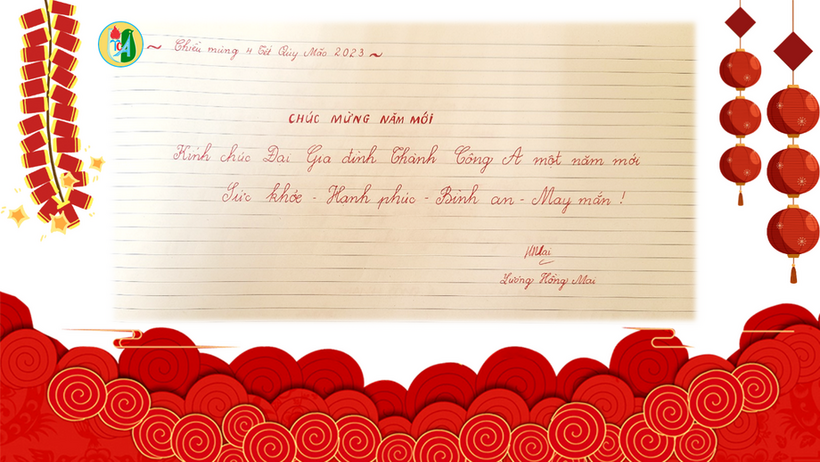 TCA
~ Chiều mùng 4 Tết Qúy Mão 2023 ~
CHÚC MỪNG NĂM MỚI
Kính chúc Đại Gia đình Thành Công A một năm mới
Sức khỏe - Hạnh phúc - Bình an - May mắn !
Lương Hồng Mai